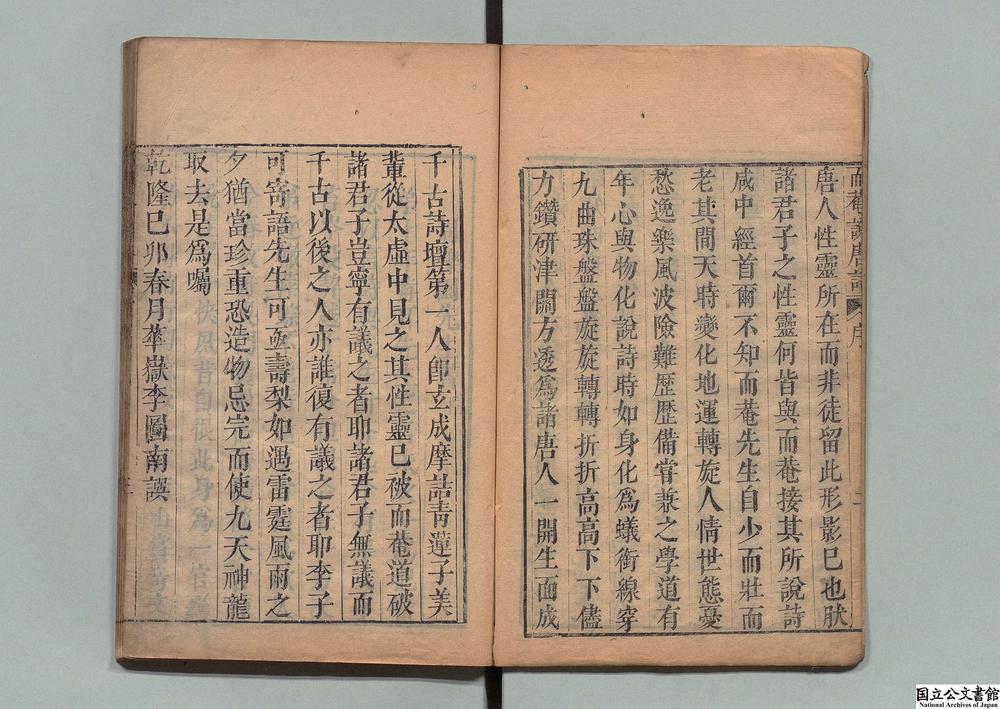 唐人性靈所在而非徒留此形影已也肰
諸君子之性靈何皆與而菴接其所說詩
咸中經首爾不知而菴先生自少而壯而
老其間天時變化地運轉旋人情世態憂
愁逸樂風波險難歷歷備嘗兼之學道有
年心與物化說詩時如身化爲蟻銜線穿
九曲珠盤盤旋旋轉轉折折高高下下儘
力鑽研津關方透爲諸唐人一開生面成
千古詩壇第一人卽玄成摩詰靑蓮子美
輩從太虛中見之其性靈已被而菴道破
諸君子豈寧有議之者耶諸君子無議而
千古以後之人亦誰復有議之者耶李子
可寄語先生可亟壽梨如遇雷霆風雨之
夕猶當珍重恐造物忌完而使九天神龍
取去是爲囑
乾隆己卯春月華嶽李圖南譔
而菴說唐詩 序 二
三
国立公文書館
National Archives of Japan